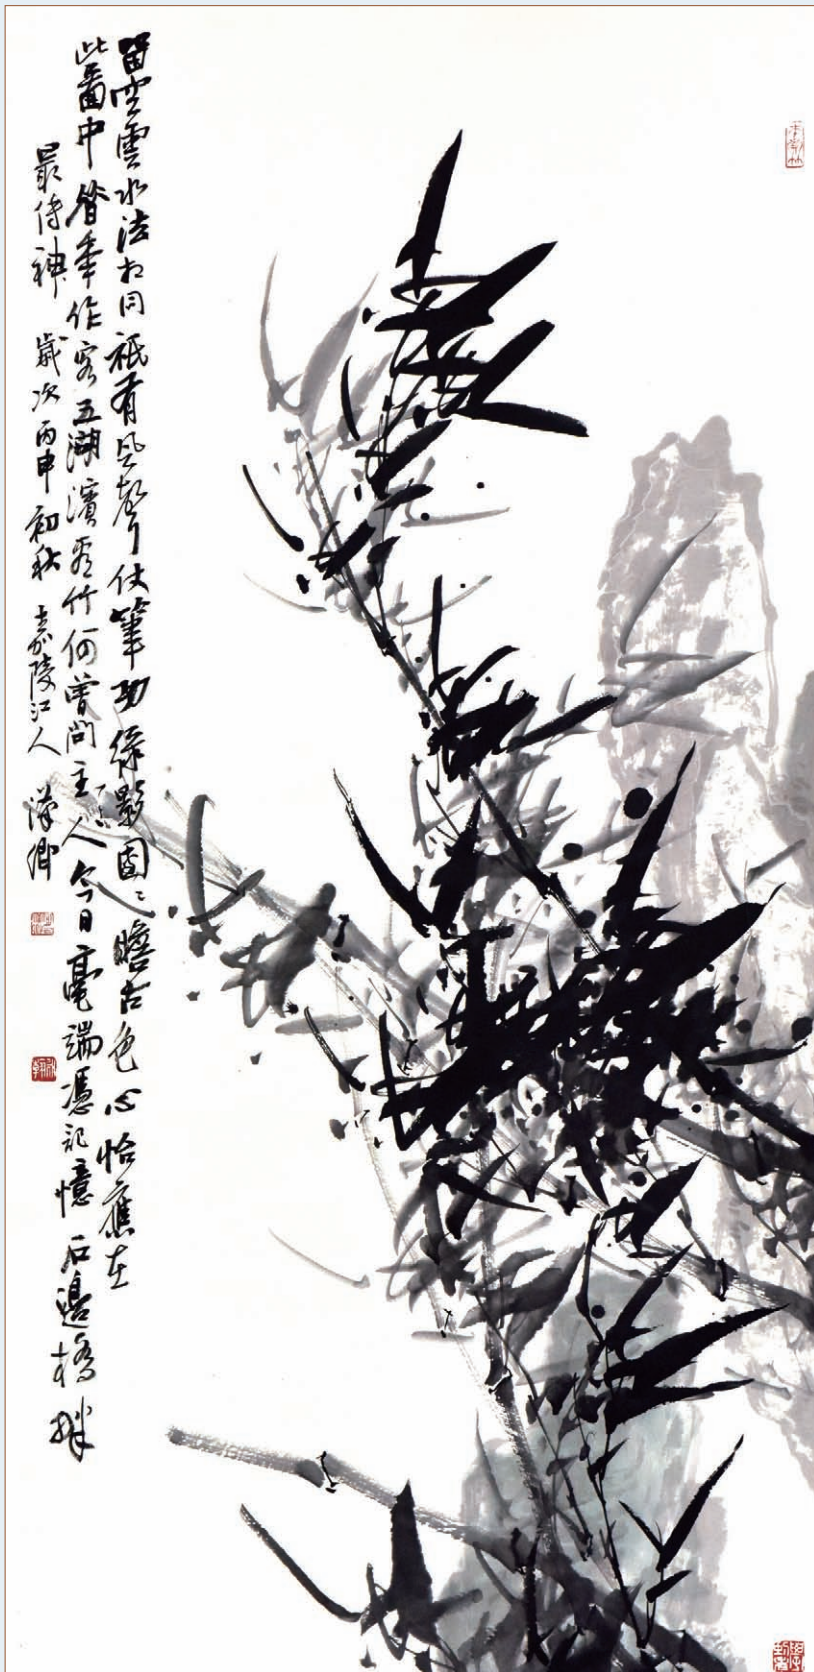 留空雲水法相同祇有風聲仗筆功綠影團〻瞻古色心恰應在
此圖中昔年作客五湖濱看竹何曾問主人今日毫端憑記憶石邊橋畔
最傳神 歲次丙申初秋 嘉陵江人 漢卿